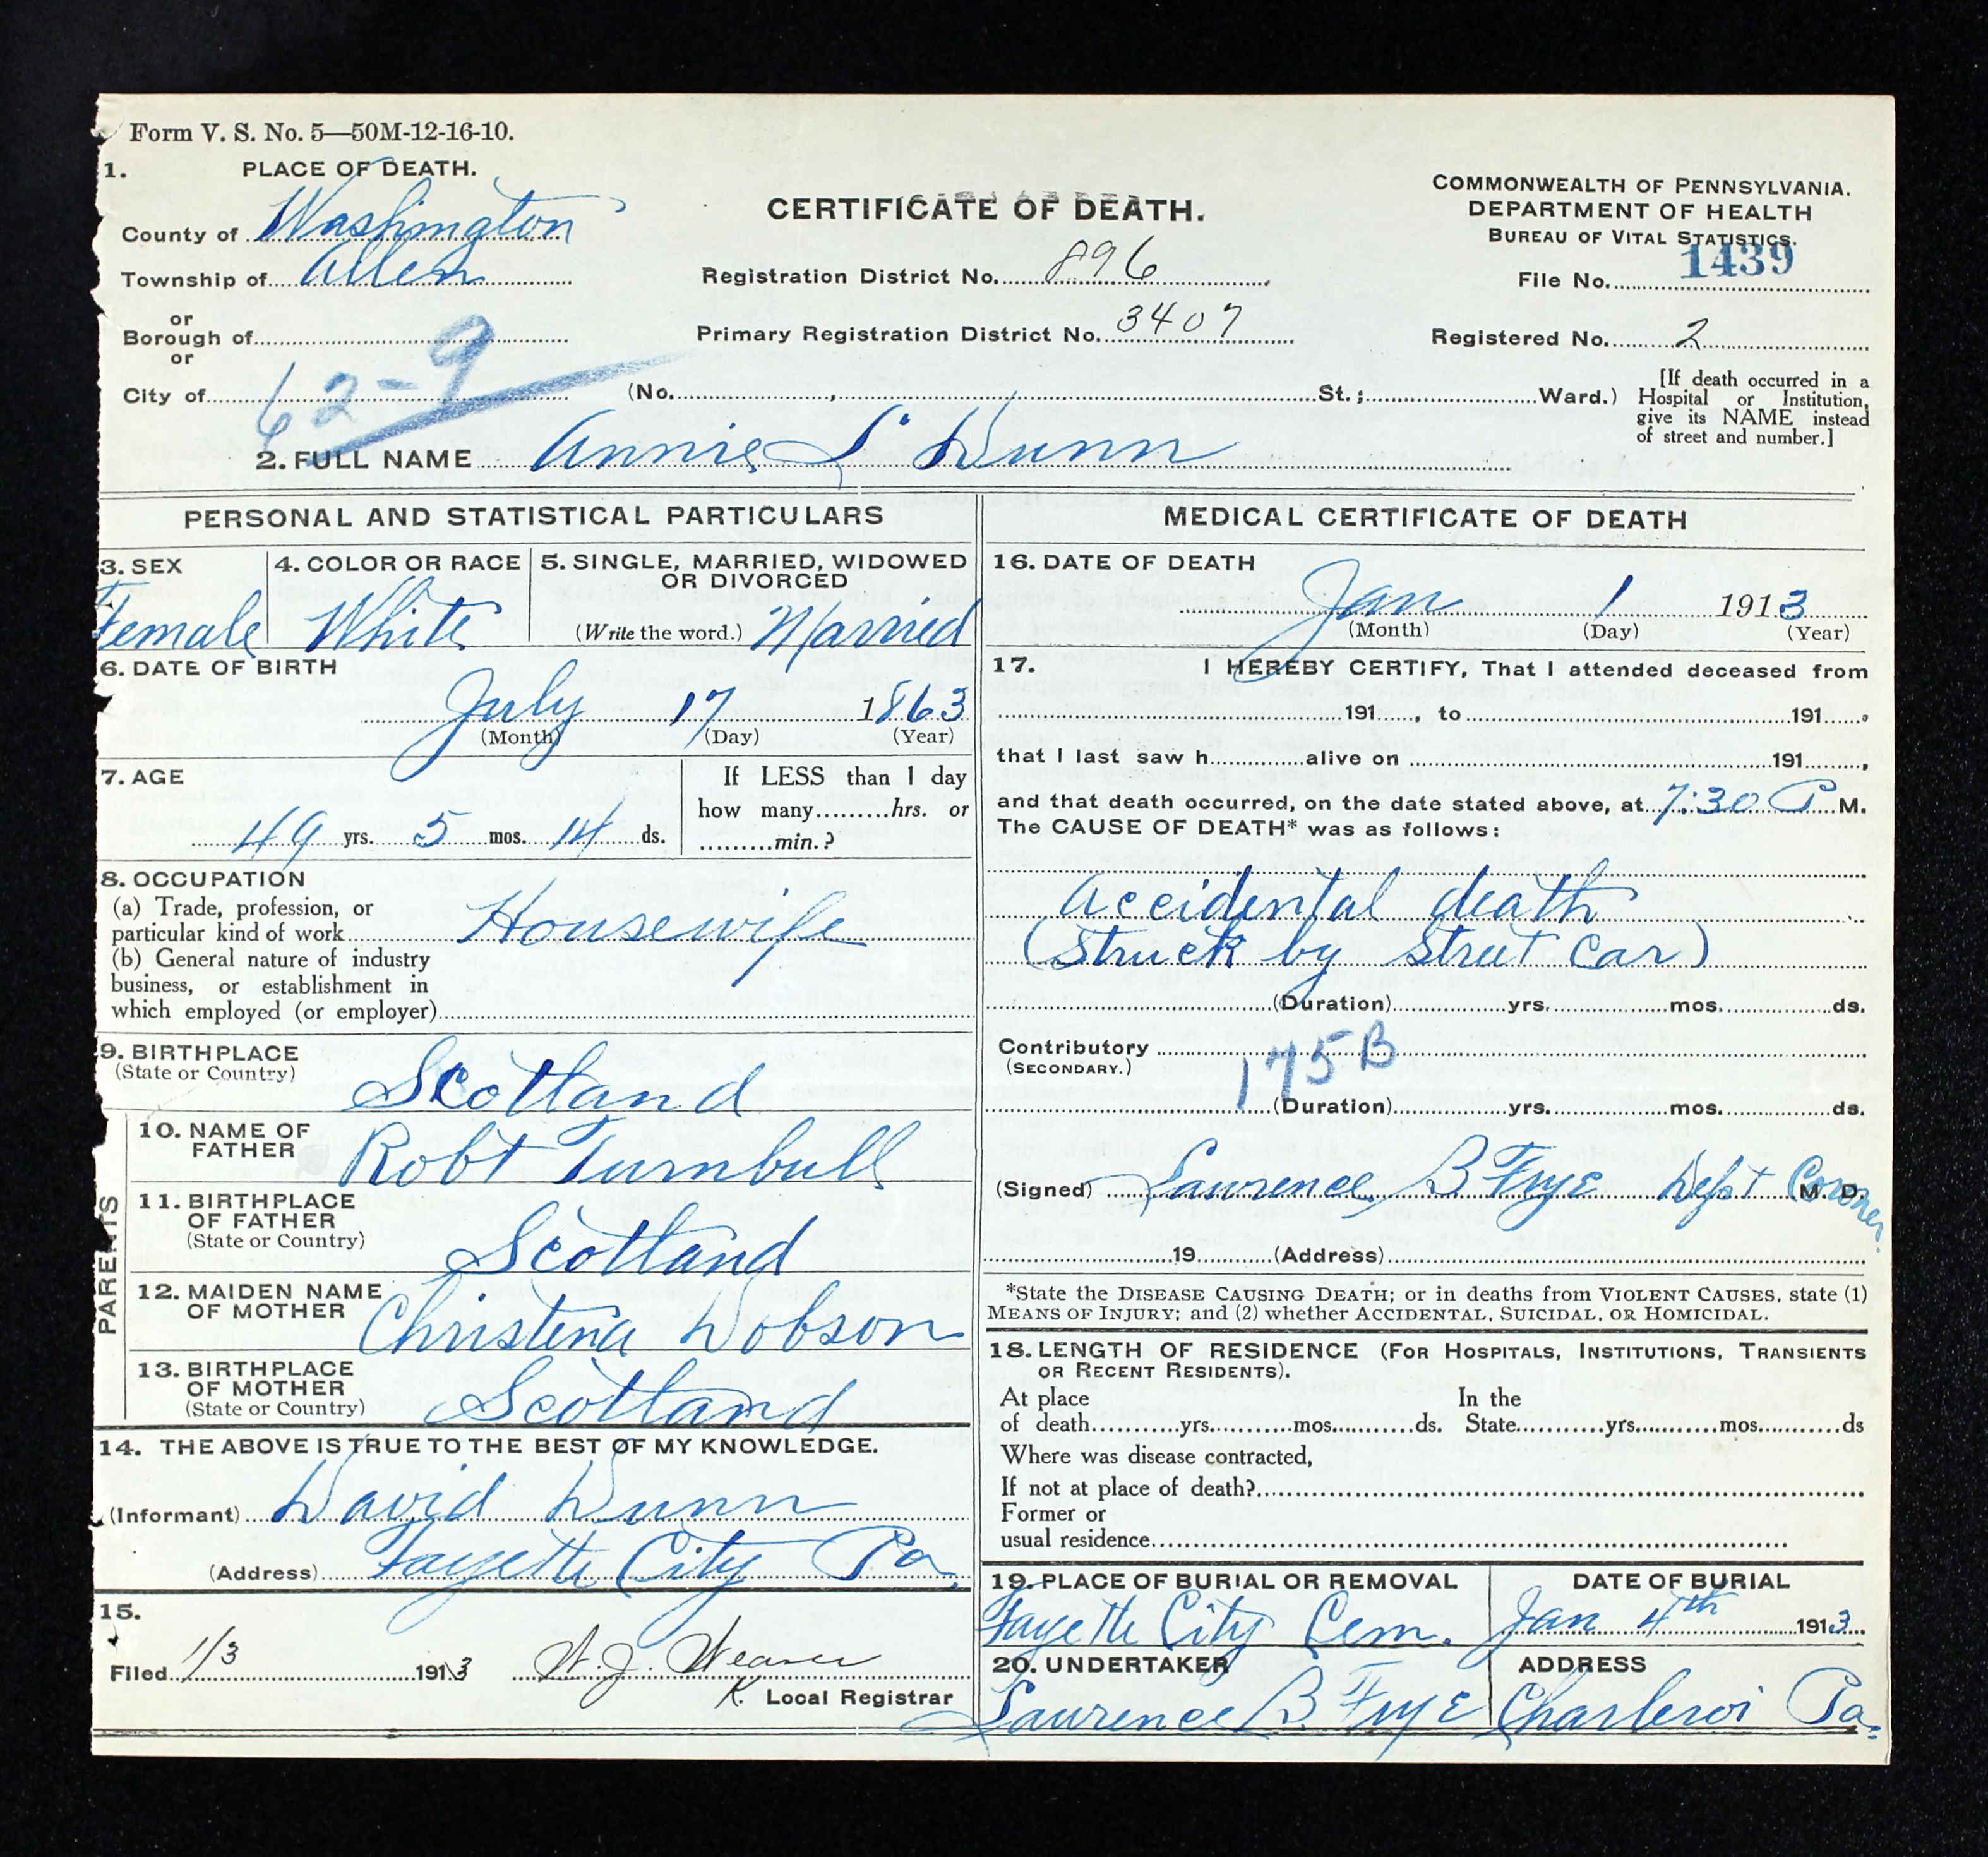 Form V. S. No. 5—50M-12-16-10.
1. PLACE OF DEATH.
County of Washington
Township of Allen
or
Borough of
or
City of
62-9
CERTIFICATE OF DEATH.
Registration District No. 896
Primary Registration District No. 3407
(No. , St.; Ward.)
COMMONWEALTH OF PENNSYLVANIA.
DEPARTMENT OF HEALTH
BUREAU OF VITAL STATISTICS.
File No. 1439
Registered No. 2
[If death occurred in a
Hospital or Institution,
give its NAME instead
of street and number.]
2. FULL NAME Annie S Dunn
PERSONAL AND STATISTICAL PARTICULARS
3. SEX
Female
4. COLOR OR RACE
White
5. SINGLE, MARRIED, WIDOWED
OR DIVORCED
(Write the word.) Married
6. DATE OF BIRTH
July 17 1863
(Month) (Day) (Year)
7. AGE
49 yrs. 5 mos. 14 ds.
If LESS than 1 day
how many hrs. or
min.?
8. OCCUPATION
(a) Trade, profession, or
particular kind of work Housewife
(b) General nature of industry
business, or establishment in
which employed (or employer)
9. BIRTHPLACE
(State or Country)
Scotland
PARENTS
10. NAME OF
FATHER
Robt Turnbull
11. BIRTHPLACE
OF FATHER
(State or Country)
Scotland
12. MAIDEN NAME
OF MOTHER
Christena Dobson
13. BIRTHPLACE
OF MOTHER
(State or Country)
Scotland
14. THE ABOVE IS TRUE TO THE BEST OF MY KNOWLEDGE.
(Informant) David Dunn
(Address) Fayette City Pa.
15.
Filed 1/3 1913 W. J. Weaver
K. Local Registrar
MEDICAL CERTIFICATE OF DEATH
16. DATE OF DEATH
Jan 1 1913
(Month) (Day) (Year)
17. I HEREBY CERTIFY, That I attended deceased from
191 , to 191 .
that I last saw h alive on 191 ,
and that death occurred, on the date stated above, at 7:30 P M.
The CAUSE OF DEATH* was as follows:
Accidental death
(Struck by Street Car)
(Duration) yrs. mos. ds.
Contributory
(SECONDARY.)
175B
(Duration) yrs. mos. ds.
(Signed) Lawrence B Frye Dept Coroner. M. D.
19 (Address)
*State the DISEASE CAUSING DEATH; or in deaths from VIOLENT CAUSES, state (1)
MEANS OF INJURY; and (2) whether ACCIDENTAL, SUICIDAL, OR HOMICIDAL.
18. LENGTH OF RESIDENCE (FOR HOSPITALS, INSTITUTIONS, TRANSIENTS
OR RECENT RESIDENTS).
At place In the
of death yrs. mos. ds. State yrs. mos. ds
Where was disease contracted,
If not at place of death?
Former or
usual residence
19. PLACE OF BURIAL OR REMOVAL
Fayette City Cem.
DATE OF BURIAL
Jan 4th 1913
20. UNDERTAKER
Lawrence B Frye
ADDRESS
Charleroi Pa.